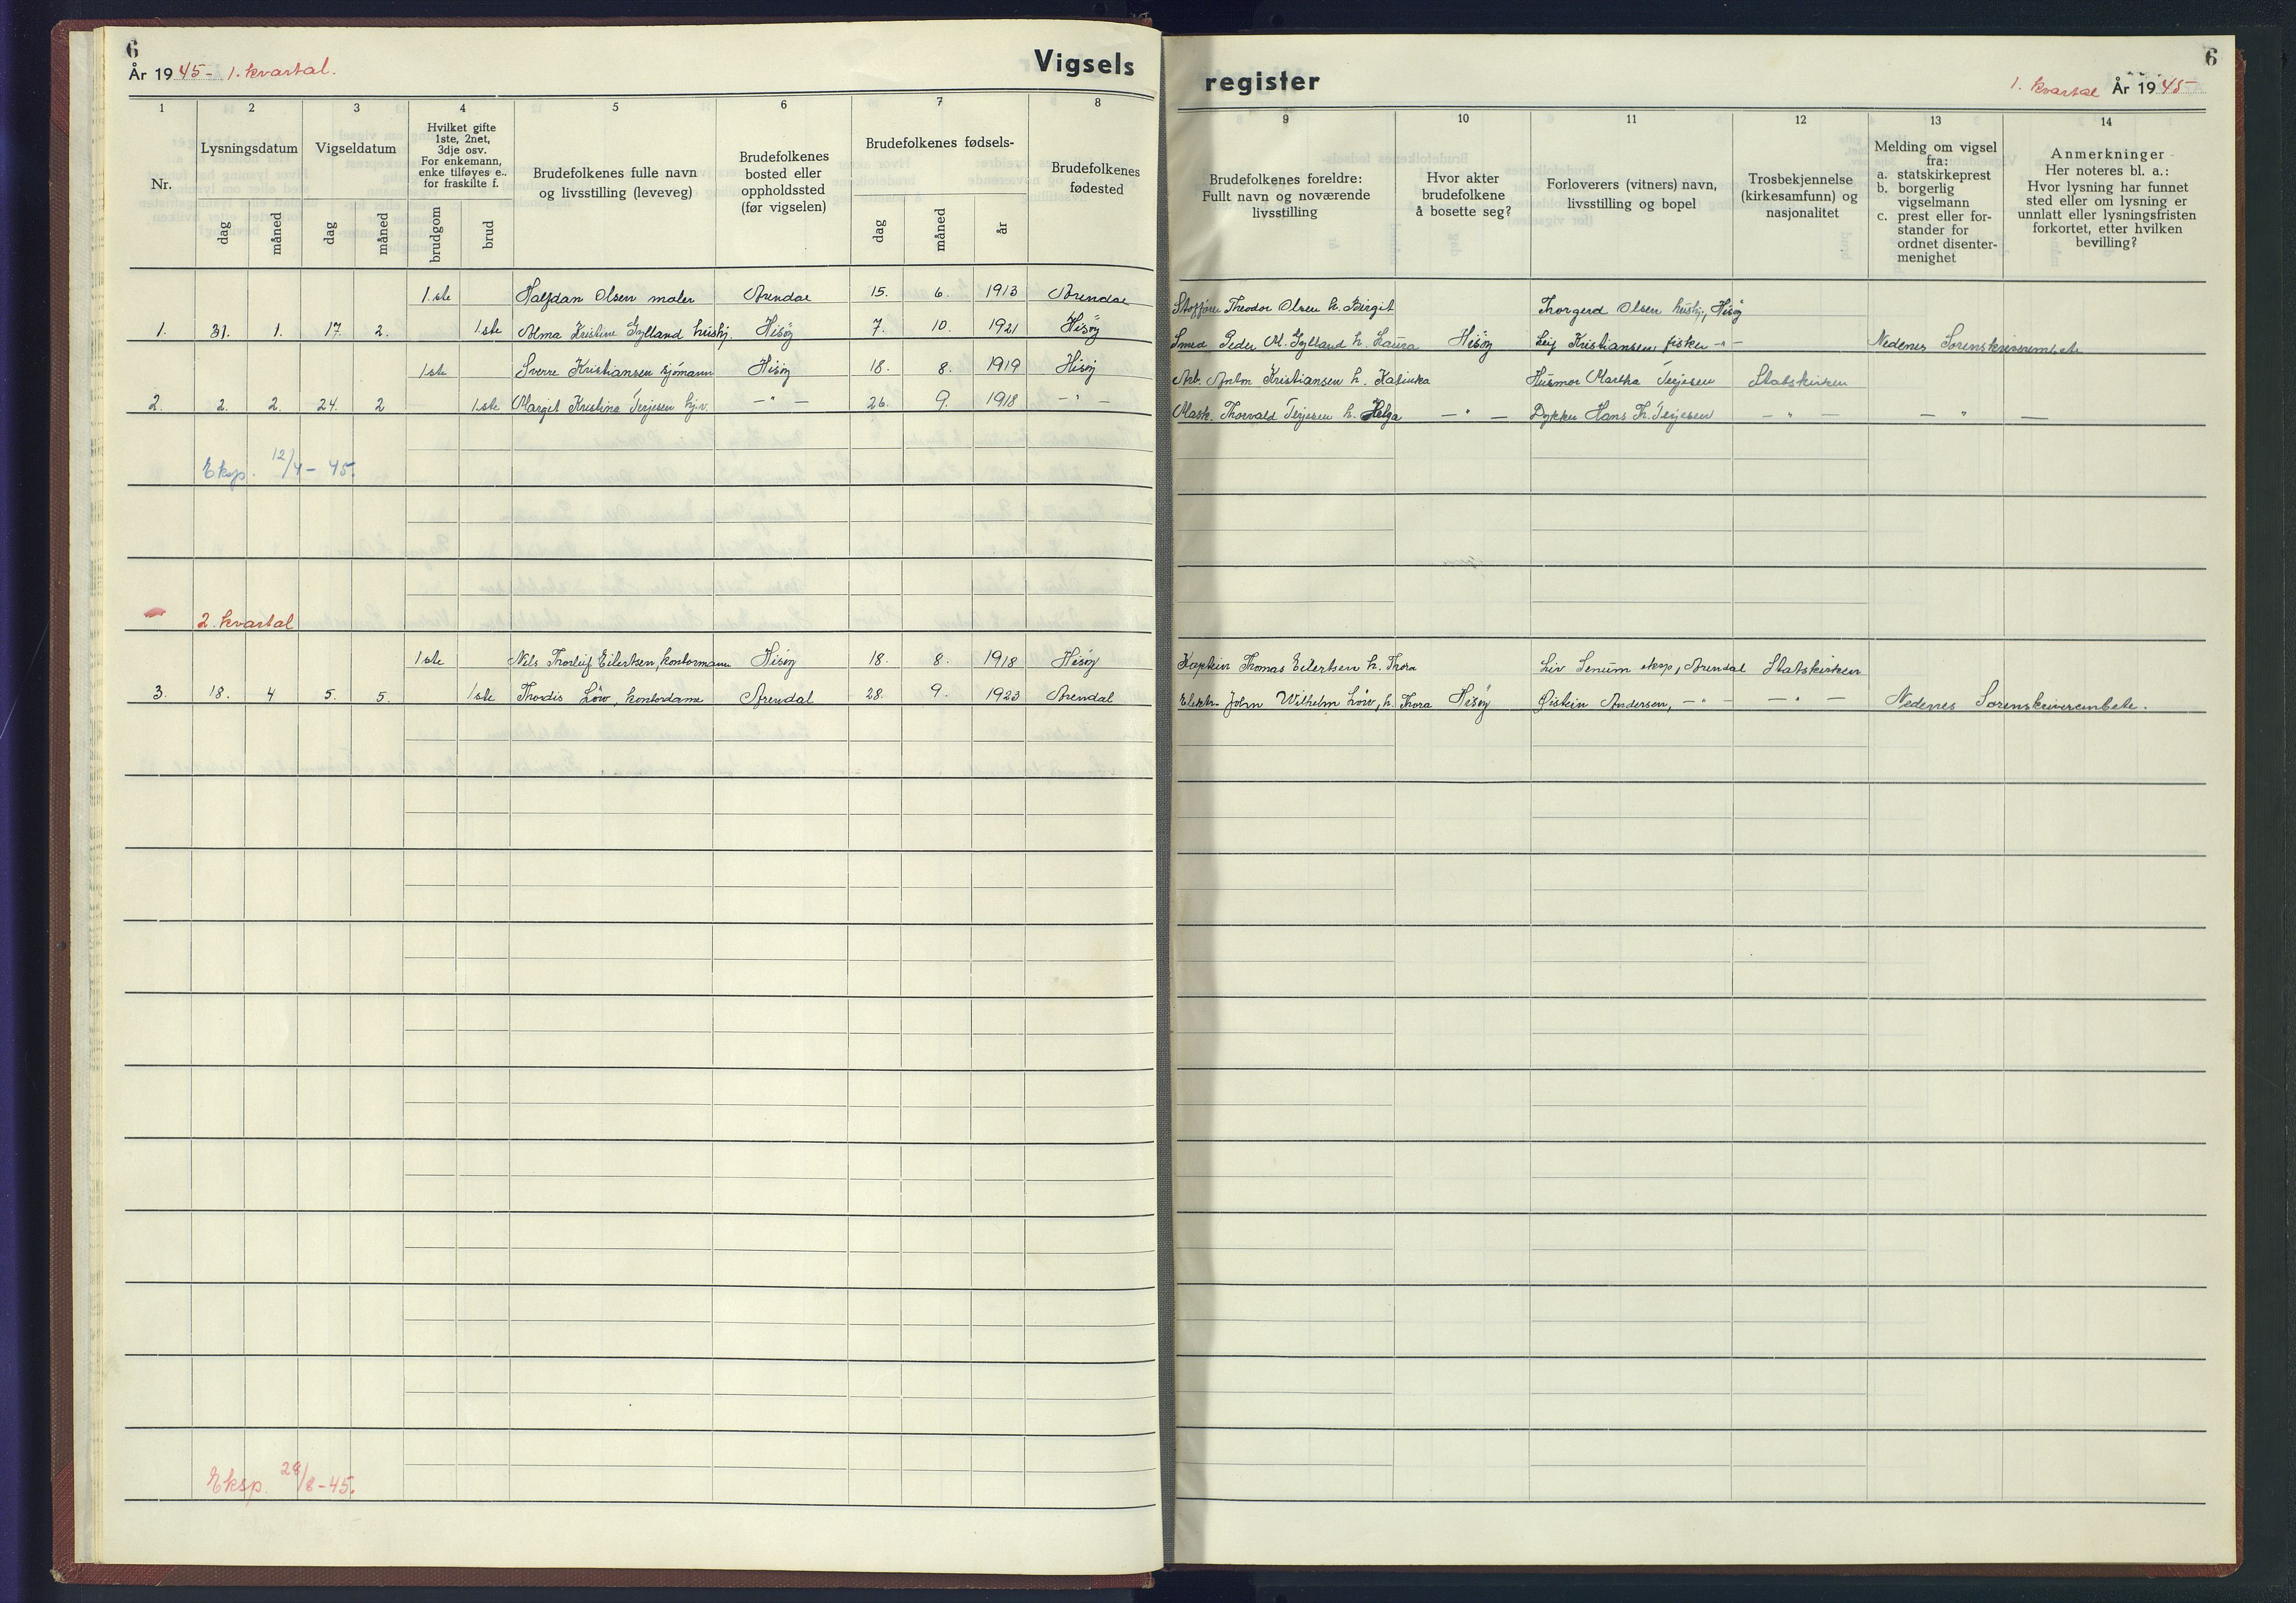 6
År 1945 - 1. kvartal.
Vigsels
1 2 3 4 5 6 7 8
Nr.
Lysningsdatum
dag måned
Vigseldatum
dag måned
Hvilket gifte
1ste, 2net,
3dje osv.
For enkemann,
enke tilføyes e..
for fraskilte f.
brudgom brud
Brudefolkenes fulle navn
og livsstilling (leveveg)
Brudefolkenes
bosted eller
oppholdssted
(før vigselen)
Brudefolkenes fødsels-
dag måned år
Brudefolkenes
fødested
1 ste Halfdan Olsen maler Arendal 15. 6. 1913 Arendal
1. 31. 1. 17. 2. 1 ste Alma Kristine Gylland hushj. Hisöy 7. 10. 1921 Hisöy
1 ste Sverre Kristiansen sjömann Hisöy 18. 8. 1919 Hisöy
2. 2. 2. 24. 2 1 ste Margit Kristine Terjesen hj.v. — " — 26. 9. 1918 — " —
Eksp. 12/4 - 45.
2. kvartal
1 ste Nils Thorleif Eilertsen, kontormann Hisöy 18. 8. 1918 Hisöy
3. 18. 4 5. 5. 1 ste Thordis Löw, kontordame Arendal 28. 9. 1923 Arendal
Eksp. 28/8 - 45.
6
register
1. kvartal År 1945 -
9 10 11 12 13 14
Brudefolkenes foreldre:
Fullt navn og noværende
livsstilling
Hvor akter
brudefolkene
å bosette seg?
Forloverers (vitners) navn,
livsstilling og bopel
Trosbekjennelse
(kirkesamfunn) og
nasjonalitet
Melding om vigsel
fra:
a. statskirkeprest
b. borgerlig
vigselmann
c. prest eller for-
stander for
ordnet disenter-
menighet
Anmerkninger
Her noteres bl. a.:
Hvor lysning har funnet
sted eller om lysning er
unnlatt eller lysningsfristen
forkortet, etter hvilken
bevilling?
Theodor Olsen h. Birgit Thorgerd Olsen hushj., Hisöy
Smed Peder M. Gylland h. Laura Hisöy Leif Kristiansen, fisker — " — Nedenes Sorenskriverembete
Arb. Anton Kristiansen h. Katinka Husmor Martha Terjesen Statskirken
Mask. Thorvald Terjesen h. Helga — " — Dykker Hans Th. Terjesen — " — — " —
Kaptein Thomas Eilertsen h. Thora Liv Senum eksp., Arendal Statskirken
Elektr. John Wilhelm Löw, h. Thora Hisöy Øistein Andersen, — " — — " — Nedenes Sorenskriverembete.